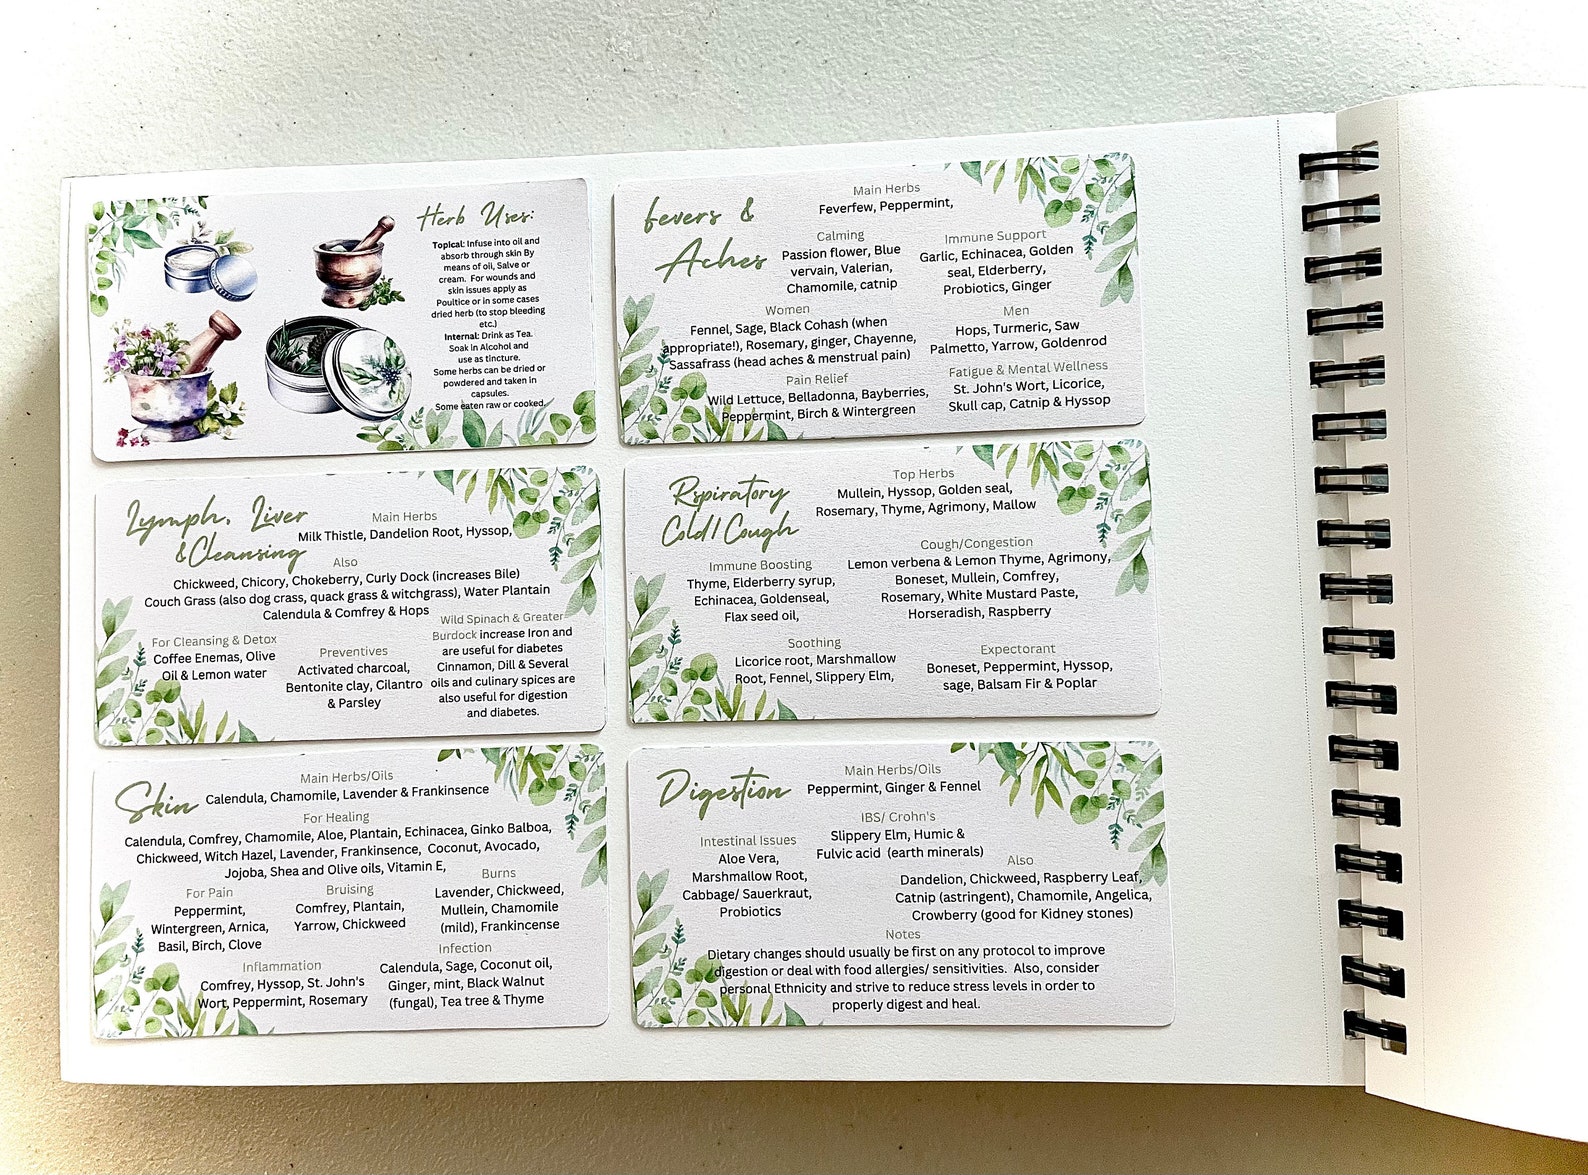 Herb Uses:
Topical: Infuse into oil and
absorb through skin By
means of oil, Salve or
cream. For wounds and
skin issues apply as
Poultice or in some cases
dried herb (to stop bleeding
etc.)
Internal: Drink as Tea.
Soak in Alcohol and
use as tincture.
Some herbs can be dried or
powdered and taken in
capsules.
Some eaten raw or cooked.
fevers &
Aches
Main Herbs
Feverfew, Peppermint,
Calming
Passion flower, Blue
vervain, Valerian,
Chamomile, catnip
Immune Support
Garlic, Echinacea, Golden
seal, Elderberry,
Probiotics, Ginger
Women
Fennel, Sage, Black Cohash (when
appropriate!), Rosemary, ginger, Chayenne,
Sassafrass (head aches & menstrual pain)
Men
Hops, Turmeric, Saw
Palmetto, Yarrow, Goldenrod
Pain Relief
Wild Lettuce, Belladonna, Bayberries,
Peppermint, Birch & Wintergreen
Fatigue & Mental Wellness
St. John's Wort, Licorice,
Skull cap, Catnip & Hyssop
Lymph, Liver
& Cleansing
Main Herbs
Milk Thistle, Dandelion Root, Hyssop,
Also
Chickweed, Chicory, Chokeberry, Curly Dock (increases Bile)
Couch Grass (also dog crass, quack grass & witchgrass), Water Plantain
Calendula & Comfrey & Hops
For Cleansing & Detox
Coffee Enemas, Olive
Oil & Lemon water
Preventives
Activated charcoal,
Bentonite clay, Cilantro
& Parsley
Wild Spinach & Greater
Burdock increase Iron and
are useful for diabetes
Cinnamon, Dill & Several
oils and culinary spices are
also useful for digestion
and diabetes.
Rspiratory
Cold/Cough
Top Herbs
Mullein, Hyssop, Golden seal,
Rosemary, Thyme, Agrimony, Mallow
Immune Boosting
Thyme, Elderberry syrup,
Echinacea, Goldenseal,
Flax seed oil,
Cough/Congestion
Lemon verbena & Lemon Thyme, Agrimony,
Boneset, Mullein, Comfrey,
Rosemary, White Mustard Paste,
Horseradish, Raspberry
Soothing
Licorice root, Marshmallow
Root, Fennel, Slippery Elm,
Expectorant
Boneset, Peppermint, Hyssop,
sage, Balsam Fir & Poplar
Skin
Main Herbs/Oils
Calendula, Chamomile, Lavender & Frankinsence
For Healing
Calendula, Comfrey, Chamomile, Aloe, Plantain, Echinacea, Ginko Balboa,
Chickweed, Witch Hazel, Lavender, Frankinsence, Coconut, Avocado,
Jojoba, Shea and Olive oils, Vitamin E,
For Pain
Peppermint,
Wintergreen, Arnica,
Basil, Birch, Clove
Bruising
Comfrey, Plantain,
Yarrow, Chickweed
Burns
Lavender, Chickweed,
Mullein, Chamomile
(mild), Frankincense
Inflammation
Comfrey, Hyssop, St. John's
Wort, Peppermint, Rosemary
Infection
Calendula, Sage, Coconut oil,
Ginger, mint, Black Walnut
(fungal), Tea tree & Thyme
Digestion
Main Herbs/Oils
Peppermint, Ginger & Fennel
Intestinal Issues
Aloe Vera,
Marshmallow Root,
Cabbage/ Sauerkraut,
Probiotics
IBS/ Crohn's
Slippery Elm, Humic &
Fulvic acid (earth minerals)
Also
Dandelion, Chickweed, Raspberry Leaf,
Catnip (astringent), Chamomile, Angelica,
Crowberry (good for Kidney stones)
Notes
Dietary changes should usually be first on any protocol to improve
digestion or deal with food allergies/ sensitivities. Also, consider
personal Ethnicity and strive to reduce stress levels in order to
properly digest and heal.